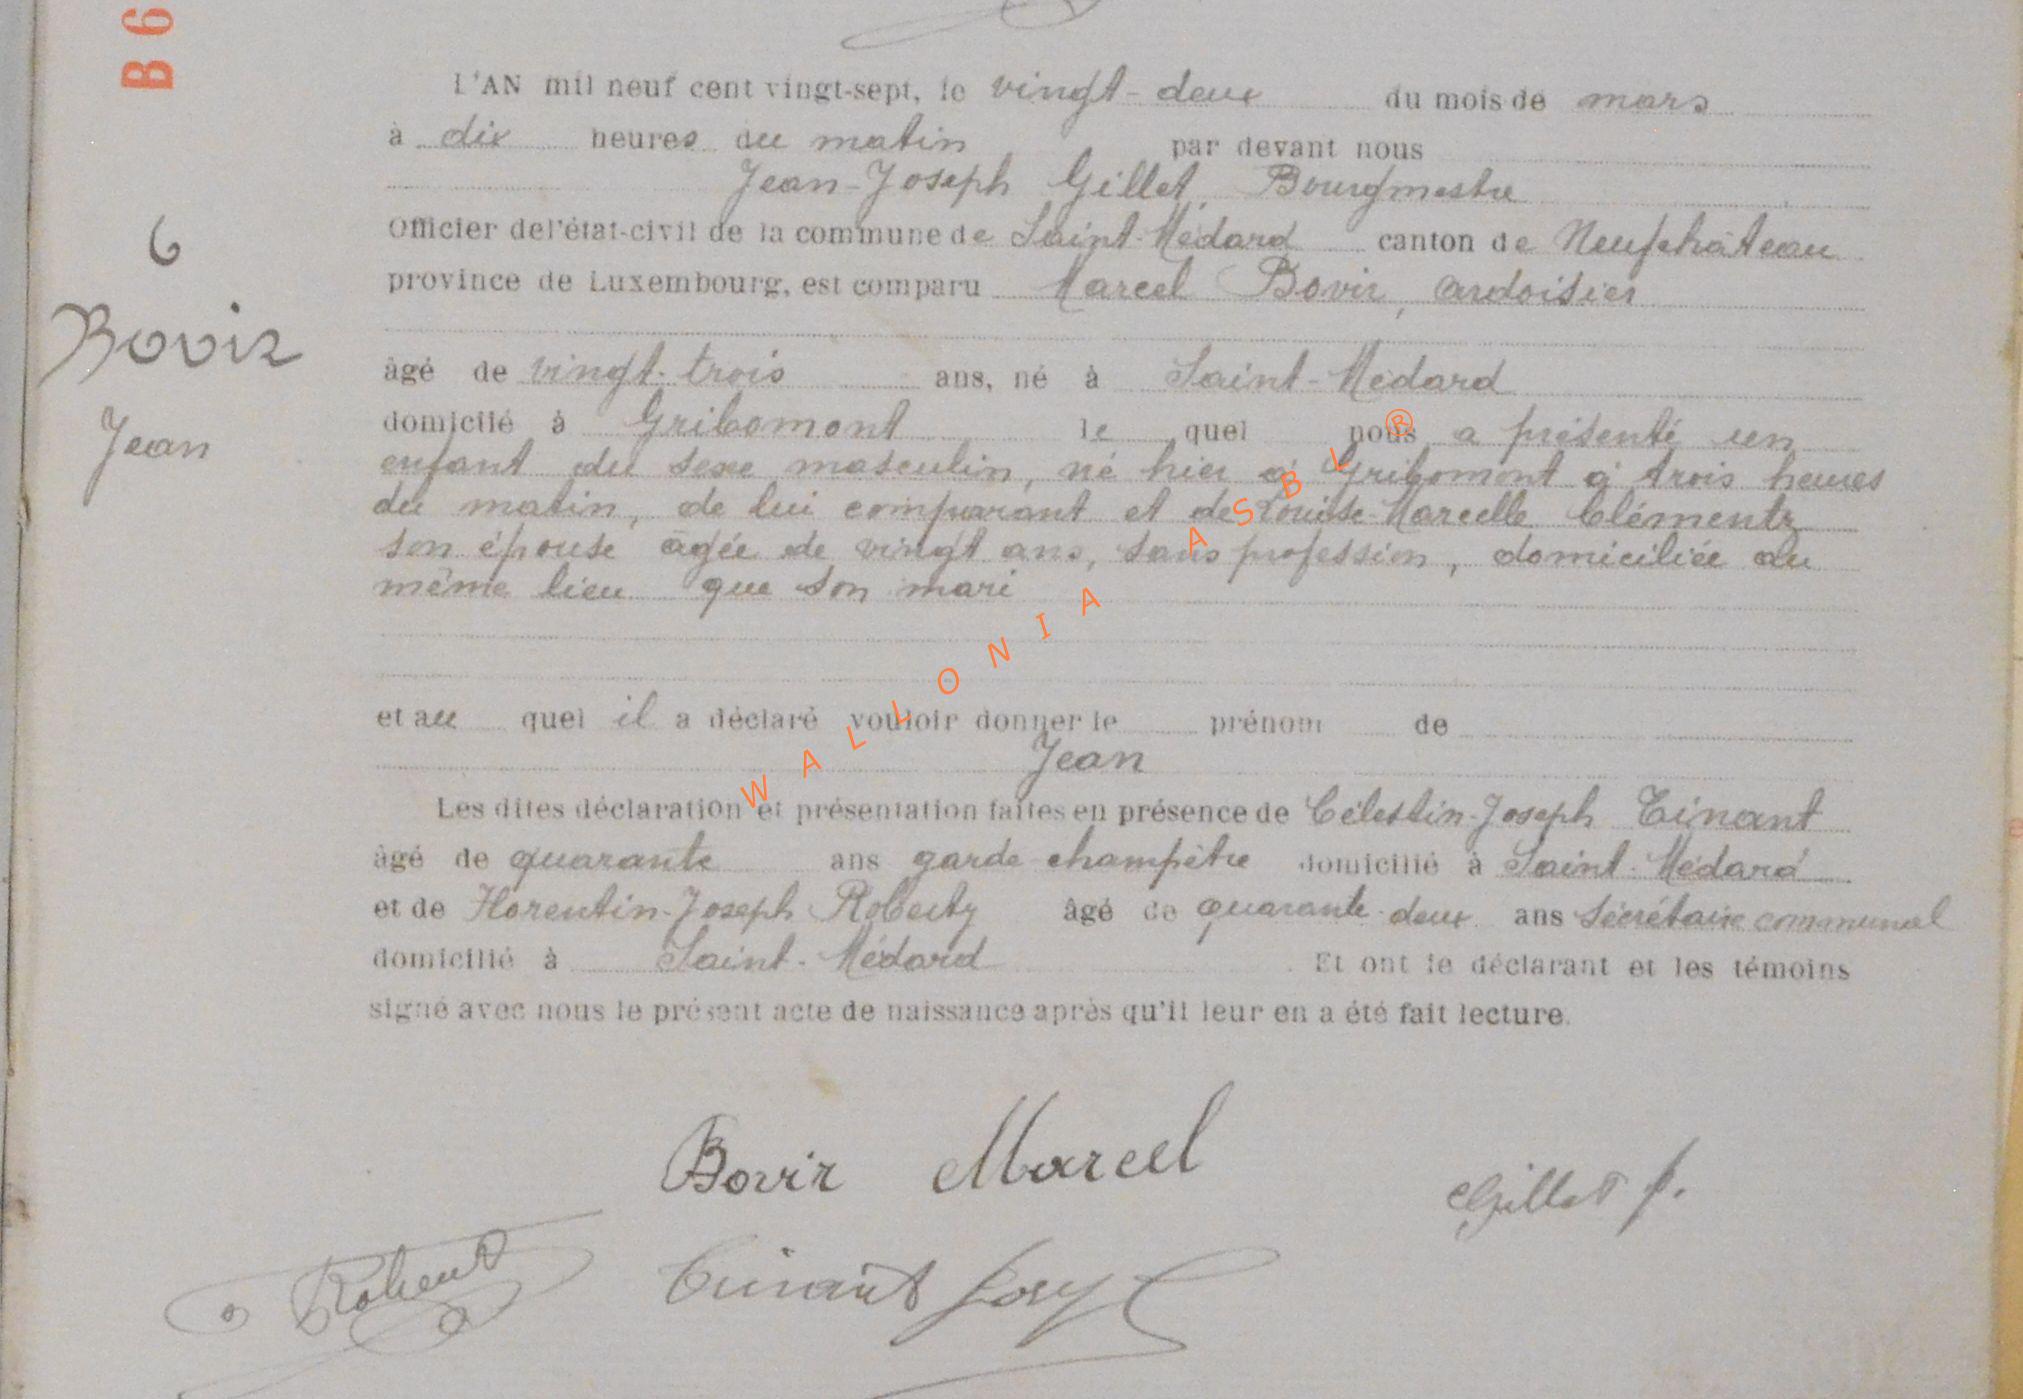 B 6
6
Bovir
Jean
L'AN mil neuf cent vingt-sept, le vingt-deux du mois de mars
à dix heures du matin par devant nous
Jean-Joseph Gillet, Bourgmestre
Officier de l'état-civil de la commune de Saint-Médard canton de Neufchâteau
province de Luxembourg, est comparu Marcel Bovir, ardoisier
âgé de vingt-trois ans, né à Saint-Médard
domicilié à Gribomont le quel nous a présenté un
enfant du sexe masculin, né hier à Gribomont à trois heures
du matin, de lui comparant et de Louise-Marcelle Clémentz
son épouse âgée de vingt ans, sans profession, domiciliée au
même lieu que son mari
et au quel il a déclaré vouloir donner le prénom de
Jean
Les dites déclaration et présentation faites en présence de Célestin-Joseph Tinant
âgé de quarante ans garde-champêtre domicilié à Saint-Médard
et de Florentin-Joseph Roberty âgé de quarante-deux ans secrétaire communal
domicilié à Saint-Médard. Et ont le déclarant et les témoins
signé avec nous le présent acte de naissance après qu'il leur en a été fait lecture.
Bovir Marcel
Gillet J.
Tinant
WALLONIA ASBL ®